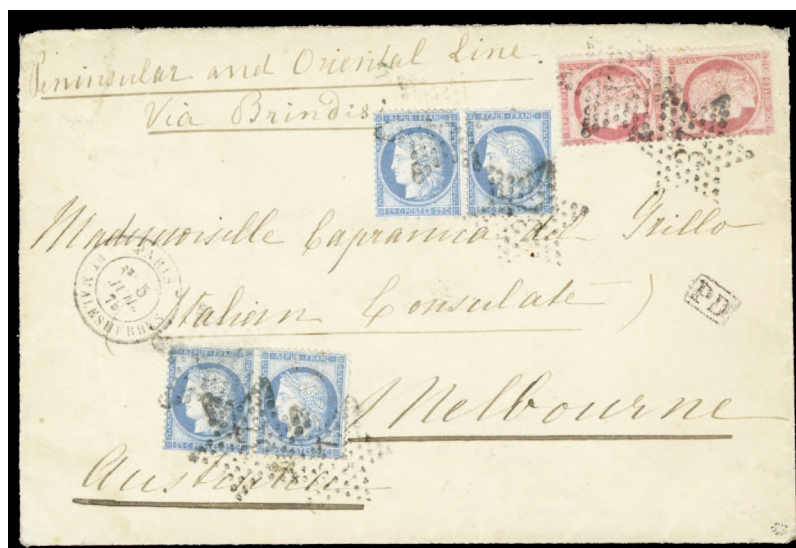 Peninsular and Oriental Line
Via Brindisi
REPUB. FRANC.
REPUB. FRANC.
25 C. POSTES 25 C.
Mademoiselle Capranica del Grillo
PARIS
5
JUIL.
75
Pl. MALESHERBES
PD
Italian Consulate
REPUB. FRANC.
REPUB. FRANC.
25 C. POSTES 25 C.
Melbourne
Australia